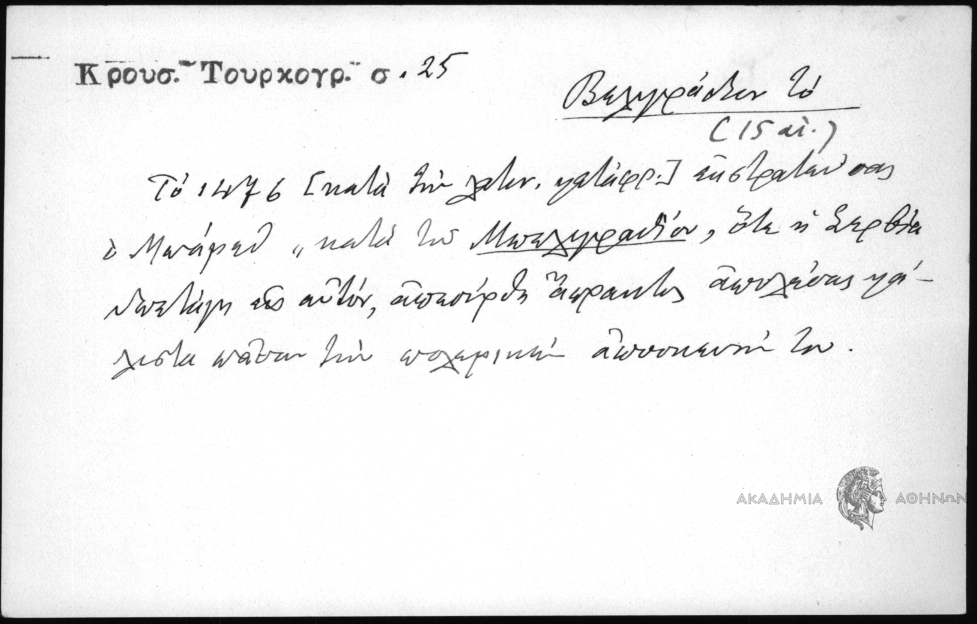 Κρουσ. Τουρκογρ. σ. 25
Βελιγράδιον τό
(15 αἰ.)
Τό 1476 [κατά τήν λατιν. μετάφρ.] ἐκστρατεύσας
ὁ Μπάμεθ „κατά τοῦ Μπελιγραδίου, ὅτε ἡ Σερβία
ὑπετάγη εἰς αὐτόν, ἀπεσύρθη ἄπρακτος ἀπωλέσας μά-
λιστα πᾶσαν τήν πολεμικήν ἀποσκευήν του.
ΑΚΑΔΗΜΙΑ ΑΘΗΝΩΝ